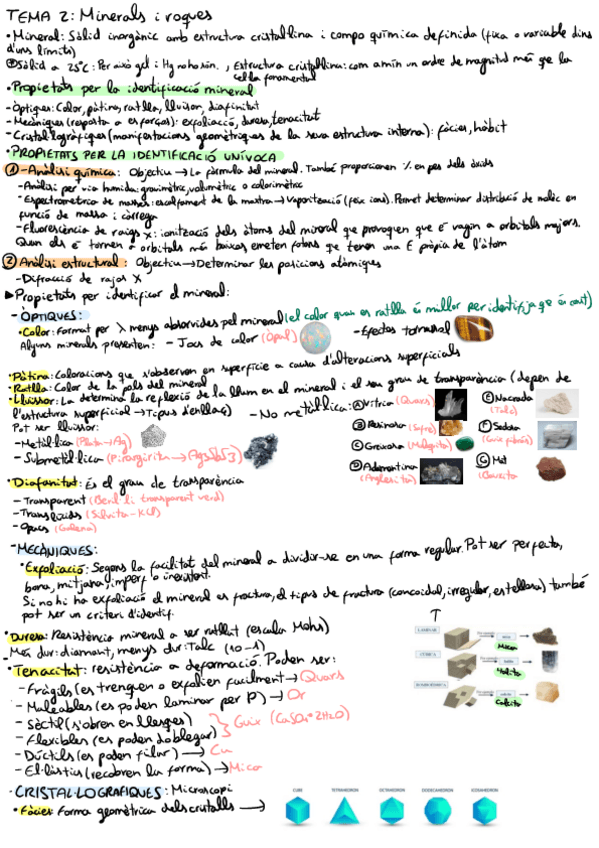 TEMA 2: Minerals i roques
• Mineral: Sòlid inorgànic amb estructura cristal·lina i compo química definida (fixa o variable dins d'uns límits)
Sòlid a 25ºC: Per això gel i Hg no ho són. , Estructura cristal·lina: com a mín un ordre de magnitud més que la cel·la fonamental
• Propietats per la identificació mineral
- Òptiques: Color, pàtina, ratlla, lluïssor, diafanitat
- Mecàniques (resposta a esforços): exfoliació, duresa, tenacitat
- Cristal·logràfiques (manifestacions geomètriques de la seva estructura interna): fàcies, hàbit
• PROPIETATS PER LA IDENTIFICACIÓ UNÍVOCA
① - Anàlisi química: Objectiu → La fórmula del mineral. També proporcionen % en pes dels òxids
- Anàlisi per via humida: gravimètric, volumètric o colorimètric
- Espectrometria de masses: escalfament de la mostra → Vaporització (feix ions). Permet determinar distribució de molèc en funció de massa i càrrega
- Fluorescència de raigs x: ionització dels àtoms del mineral que provoquen que e⁻ vagin a orbitals majors.
Quan els e⁻ tornen a orbitals més baixos emeten fotons que tenen una E pròpia de l'àtom
② Anàlisi estructural: Objectiu → Determinar les posicions atòmiques
- Difracció de rajos X
▶ Propietats per identificar el mineral:
- ÒPTIQUES:
• Color: Format per λ menys absorvides pel mineral (el color quan es ratlla és millor per identif
Alguns minerals presenten: - Jocs de color (Òpal)
- Efectes tornasol
• Pàtina: Coloracions que s'observen en superfície a causa d'alteracions superficials
• Ratlla: Color de la pols del mineral
• Lluïssor: La determina la reflexió de la llum en el mineral i el seu grau de transparència (depen de l'estructura superficial → Tipus d'enllaç)
Pot ser lluïssor:
- Metàl·lica (Plata → Ag)
- Submetàl·lica (Pirargirita → Ag₃SbS₃)
- No metàl·lica: Ⓐ Vítria (Quars)
Ⓑ Resinosa (Sofre)
Ⓒ Greixosa (Malaquita)
Ⓓ Adamantina (Anglesita)
Ⓔ Nacrada (Talc)
Ⓕ Sedosa (Guix fibrós)
Ⓖ Mat (Bauxita)
• Diafanitat: És el grau de transparència
- Transparent (Beril·li transparent verd)
- Translúcids (Silvita - KCl)
- Opacs (Galena)
- MECÀNIQUES:
• Exfoliació: Segons la facilitat del mineral a dividir-se en una forma regular. Pot ser perfecta, bona, mitjana, imperf o inexistent.
Si no hi ha exfoliació el mineral es fractura, el tipus de fractura (concoidal, irregular, estellosa) també pot ser un criteri d'identif.
• Duresa: Resistència mineral a ser ratllat (escala Mohs)
Més dur: diamant, menys dur: Talc (10 - 1)
• Tenacitat: resistència a deformació. Poden ser:
- Fràgils (es trenquen o exfolien facilment → Quars
- Maleables (es poden laminar per P) → Or
- Sèctil (s'obren en llesques)
- Flexibles (es poden doblegar)
Guix (CaSO₄ · 2H₂O)
- Dúctils (es poden filar) → Cu
- El·làstics (recobren la forma) → Mica
Mica
Halita
Calcita
· CRISTAL·LOGRAFIQUES: Microscopi
• Fàcies: Forma geomètrica dels cristalls →
CUBE
TETRAHEDRON
OCTAHEDRON
DODECAHEDRON
ICOSAHEDRON